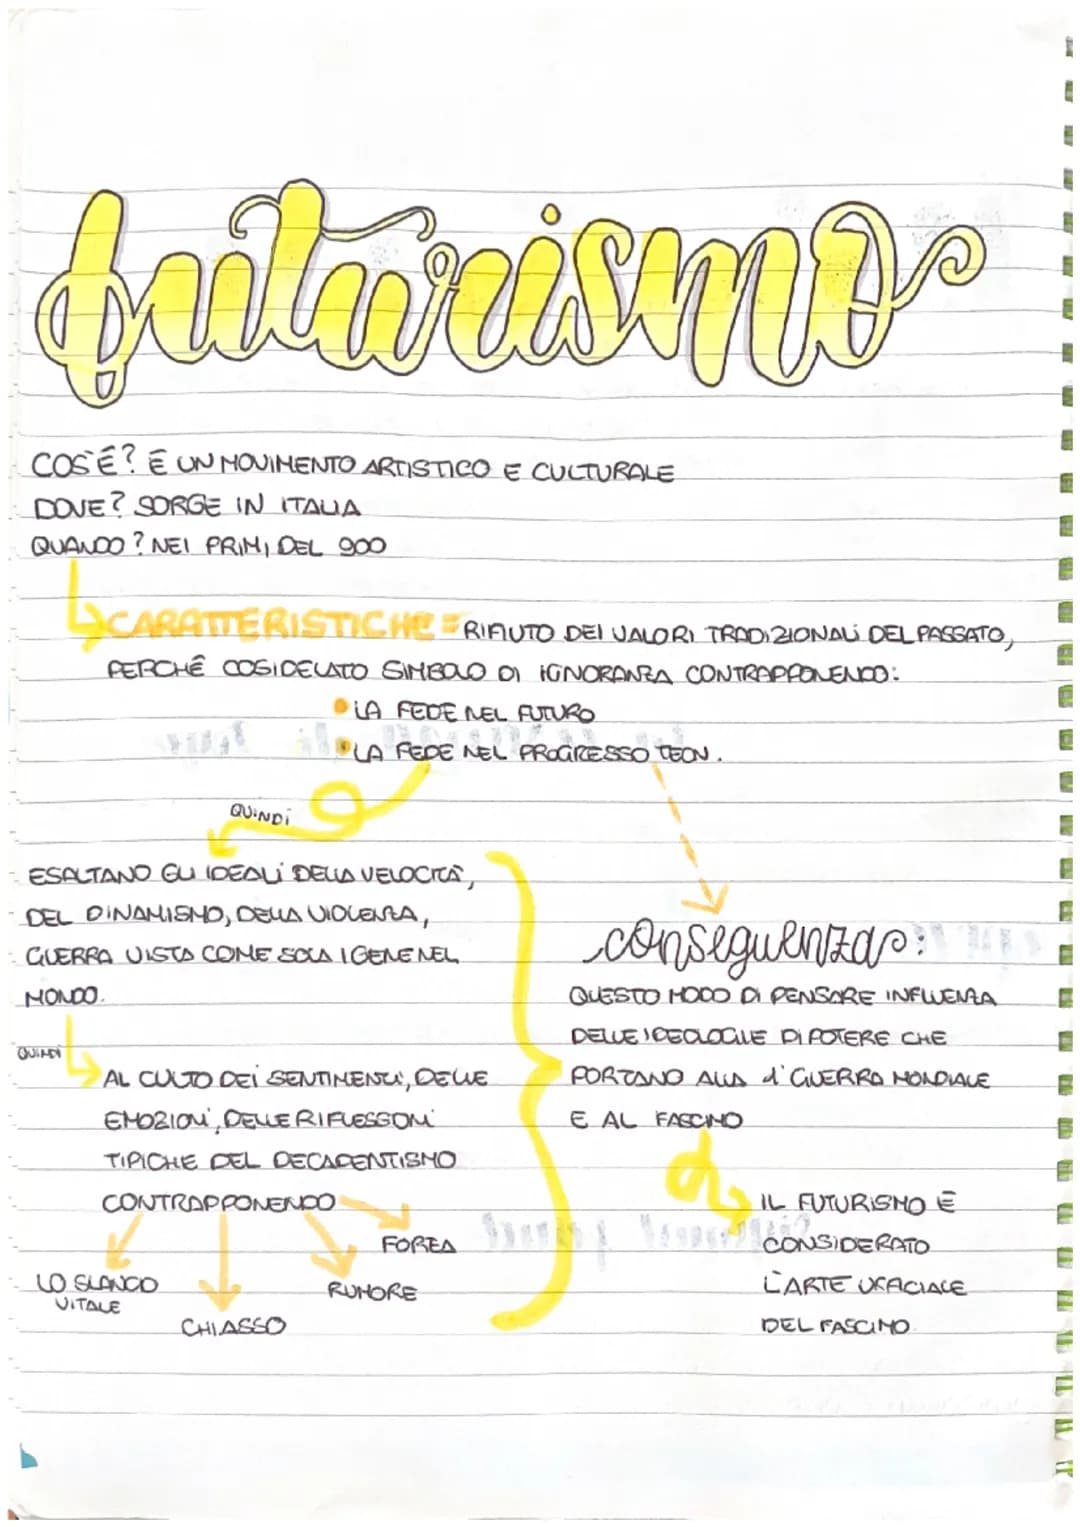 futurismo
COS'É? É UN MOVIMENTO ARTISTICO E CULTURALE
DOVE? SORGE IN ITALIA
QUANDO? NEI PRIMI DEL 900
CARATTERISTICHE = RIFIUTO DEI VALORI TRADIZIONALI DEL PASSATO,
PERCHÉ COSIDELATO SIMBOLO DI IGNORANZA CONTRAPPONENDO:
• LA FEDE NEL FUTURO
• LA FEDE NEL PROGRESSO TECN.
QUINDI
ESALTANO GLI IDEALI DELLA VELOCITÀ,
DEL DINAMISMO, DELLA VIOLENZA,
GUERRA VISTA COME SOLA IGENE NEL
MONDO.
QUINDI
AL CULTO DEI SENTIMENTI, DELLE
EMOZIONI, DELLE RIFLESSONI
TIPICHE DEL DECADENTISMO
CONTRAPPONENDO
FORZA
LO SLANCIO
VITALE
RUMORE
CHIASSO
conseguenza:
QUESTO MODO DI PENSARE INFLUENZA
DELLE IDEOLOGIE DI POTERE CHE
PORTANO ALLA 1° GUERRA MONDIALE
E AL FASCINO
IL FUTURISMO È
CONSIDERATO
L'ARTE UFFICIALE
DEL FASCINO.